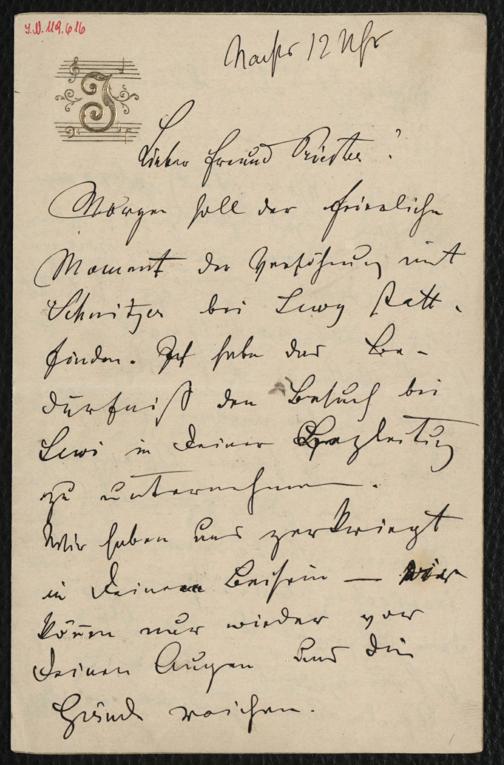 I.N. 119.616
Nachts 12 Uhr
J
Lieber Freund !
Morgen soll der feierliche
Moment der Versöhnung mit
Schnitzer bei Lewy statt-
finden. Ich habe das Be-
dürfniß den Besuch bei
Lewi in Deiner Begleitung
zu unternehmen.
Wir haben uns zerkriegt
in Deinem Beisein — wir
können nur wieder vor
Deinen Augen uns die
Hände reichen.